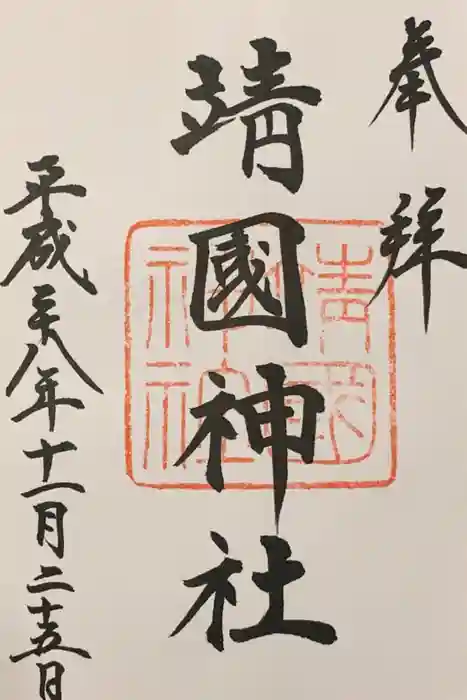 奉拝
靖國神社
平成二十八年十一月二十五日
靖國神社